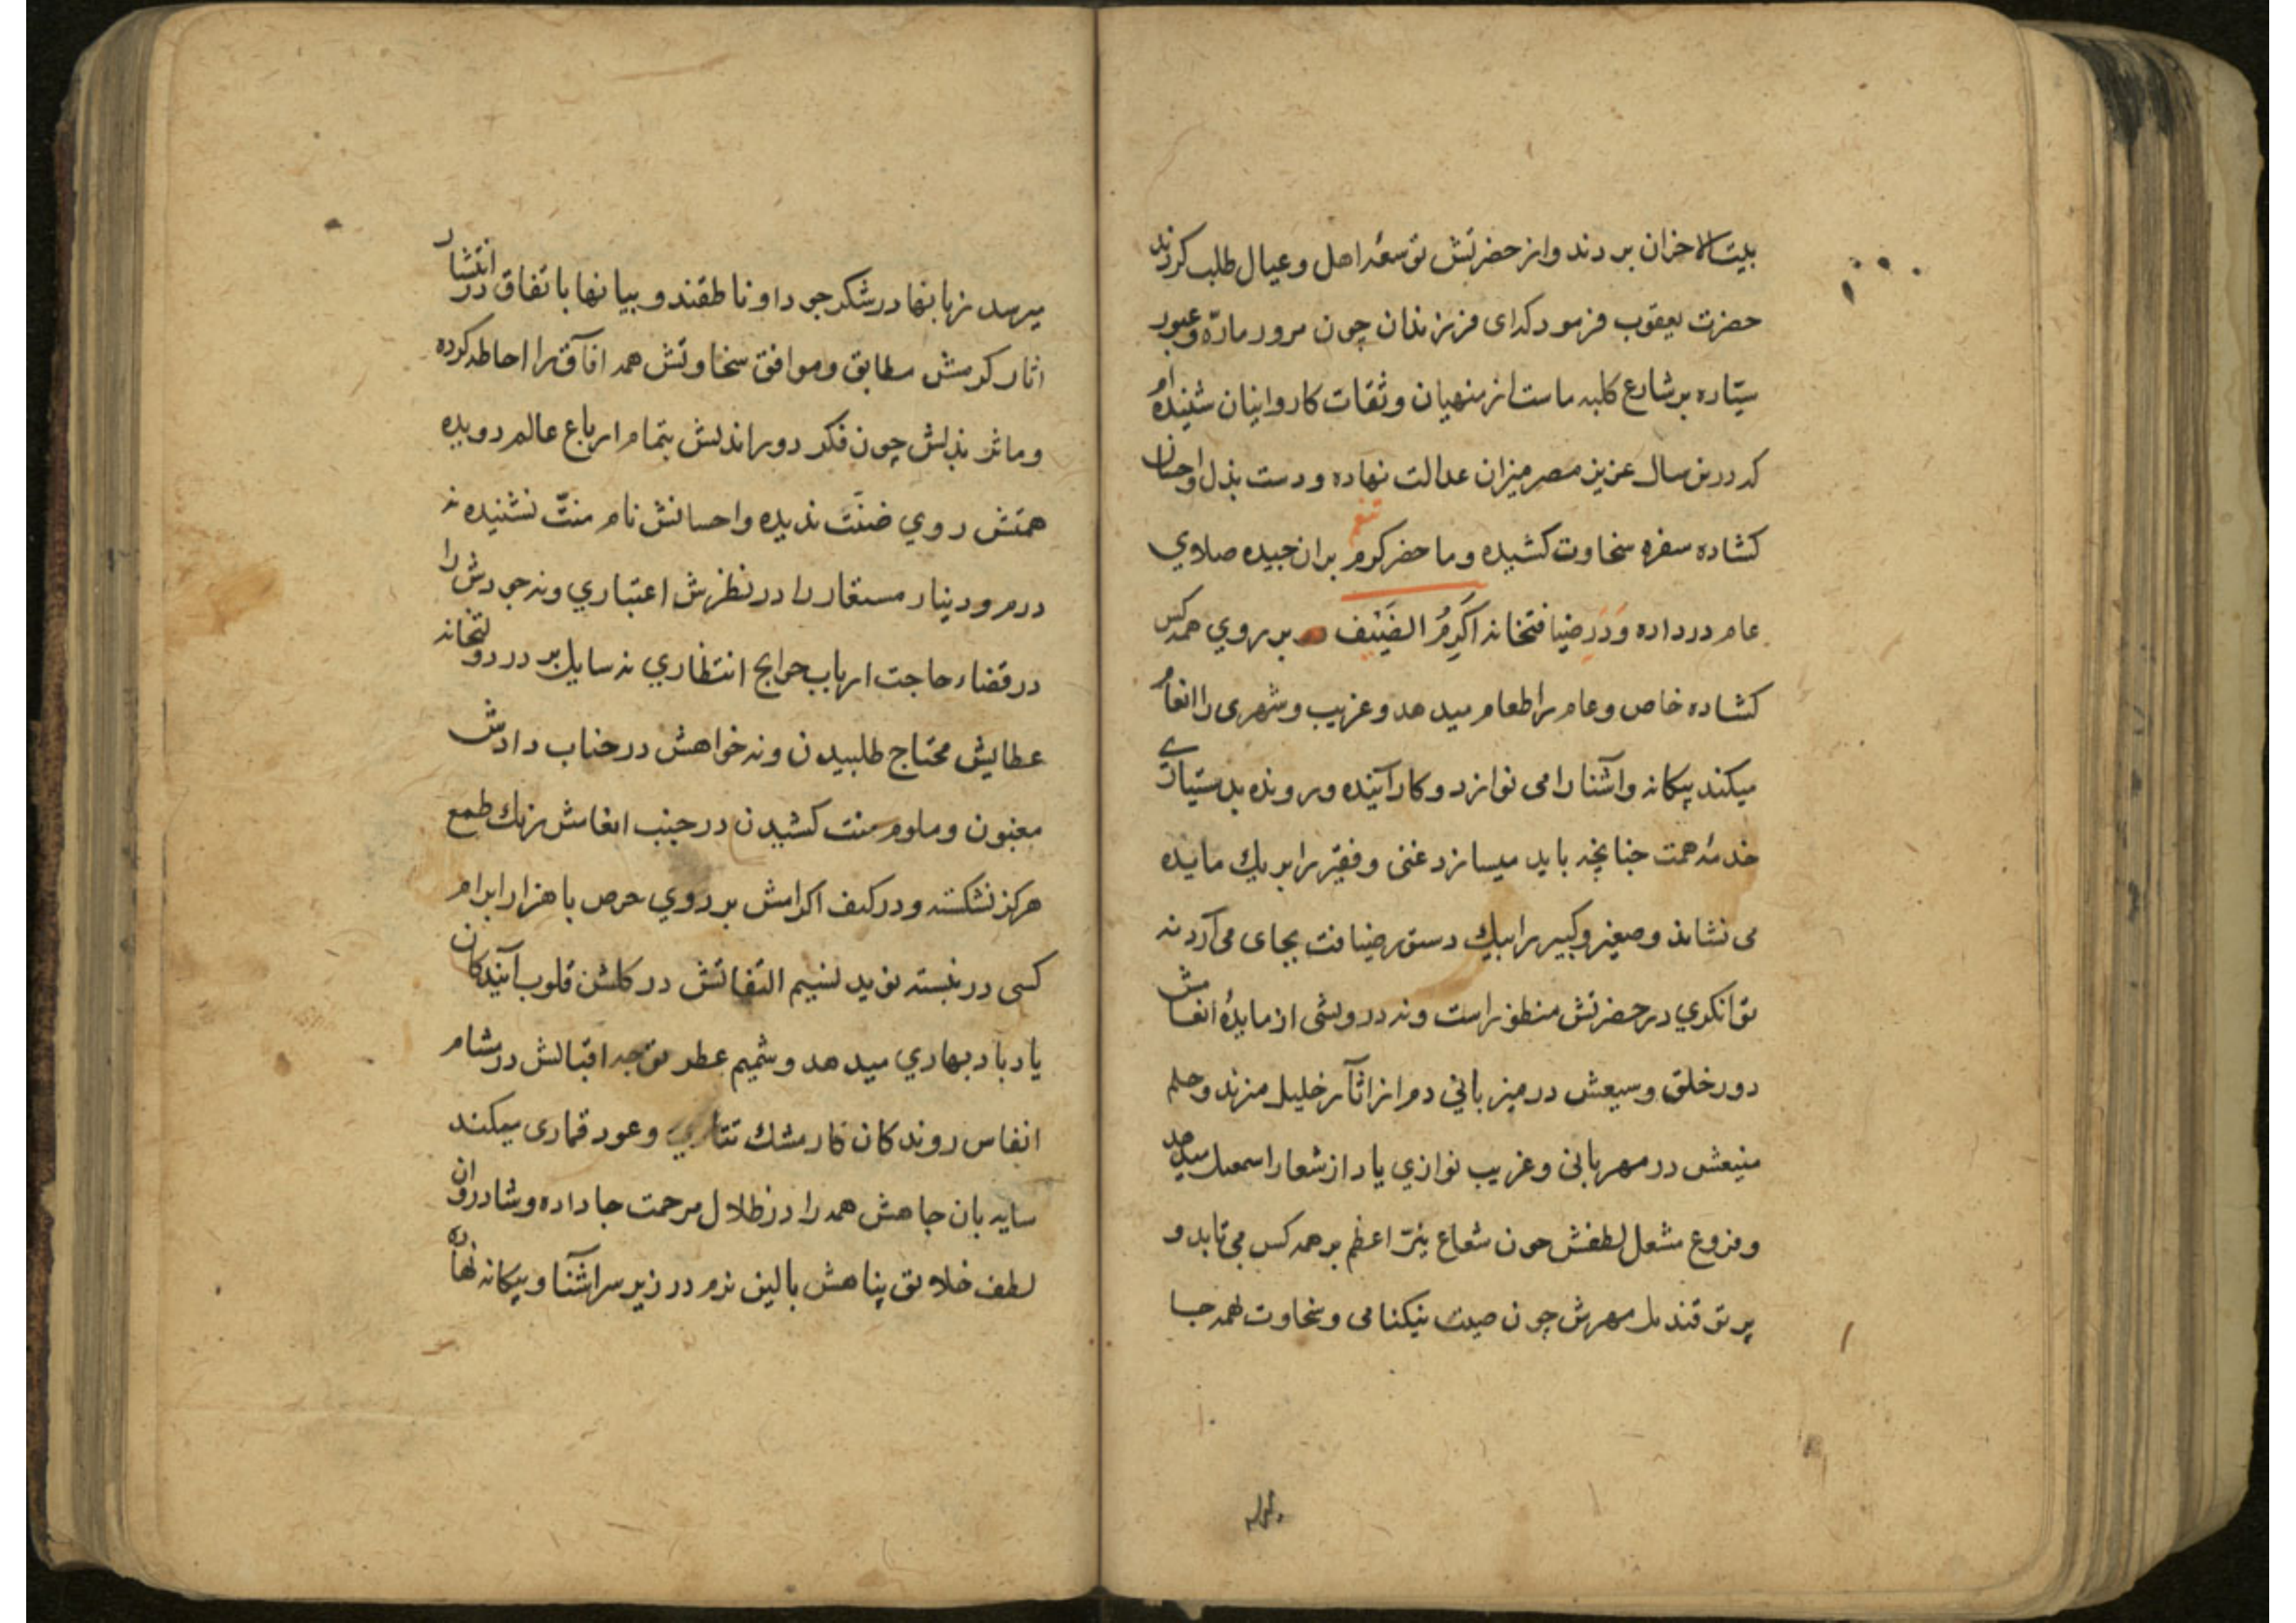 بیت‌الاحزان بردند و از حضرتش توسعهٔ اهل و عیال طلب کردند
حضرت یعقوب فرمود که ای فرزندان چون مرور مارّه و عبور
سیّاره بر شارع کلبه ماست از منهیان و ثقات کاروانیان شنیده‌ام
که درین سال عزیز مصر میزان عدالت نهاده و دست بذل و احسان
کشاده سفره سخاوت کشیده و ما حضر کرم بران چیده صلاوي
عام در داده و در ضیافتخانه اَکرِمُ الضَیْف بر روي همه کس
کشاده خاص و عام را طعام میدهد و غریب و شهری را انعام
میکند بیکانه و آشنا را می نوازد و کار آینده و رونده بدستیاري
خدمهٔ همت چنانچه باید میسازد غنی و فقیر را بر یك مایده
می نشاند و صغیر و کبیر را بیك دستور ضیافت بجای می آرد نه
توانکري در حضرتش منظور است و نه درویشی از مایدهٔ انعامش
دور خلق وسیعش در میزبانی دم از اثآر خلیل میزند و حلم
منیعش در مهربانی و غریب نوازي یاد از شعار اسمعیل میدهد
و فروغ مشعل لطفش چون شعاع نیّر اعظم بر همه کس می تابد و
پرتو قندیل مهرش چون صیت نیکنامی و سخاوت همه جا
میرسد زبانها در شکر جود او ناطقند و بیانها باتفاق در انتشار
اثار کرمش مطابق و موافق سخاوتش همه افآق را احاطه کرده
و ماثر بذلش چون فکر دوراندیش بتمام ارباع عالم دویده
همتش روي ضنّت ندیده و احسانش نام منّت نشنیده نه
درم و دینار مستعار را در نظرش اعتباري و نه جودش را
در قضاء حاجت ارباب حوایج انتظاري نه سایل بر در دولتخانه
عطایش محتاج طلبیدن و نه خواهش در جناب دادش
مغبون و ملوم منت کشیدن در جنب انعامش رنك طمع
هرکز نشکسته و در کنف اکرامش بر روي حرص با هزار ابرام
کسی در نبسته نوید نسیم التفاتش در کلشن قلوب آیندکان
یاد باد بهاري میدهد و شمیم عطر توجه اقبالش در مشام
انفاس روندکان کار مشك تتاري و عود قماری میکند
سایه بان جاهش همه را در ظلال مرحمت جا داده و شادروان
لطف خلایق پناهش بالین نرم در زیر سر آشنا و بیکانه نهاده